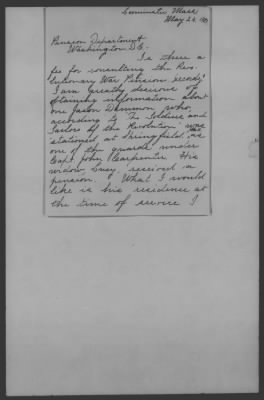 Leominster Mass
May 24
Pension Department
Washington D.C.
Is there a
fee for consulting the Rev-
olutionary War Pension records?
I am greatly desirous of
obtaining information about
one Jason Dammon who,
according to The Soldiers and
Sailors of the Revolution was
stationed at Springfield as
one of the guards under
Capt. John Carpenter His
widow Lucy received a
pension. What I would
like is his residence at
the time of service I